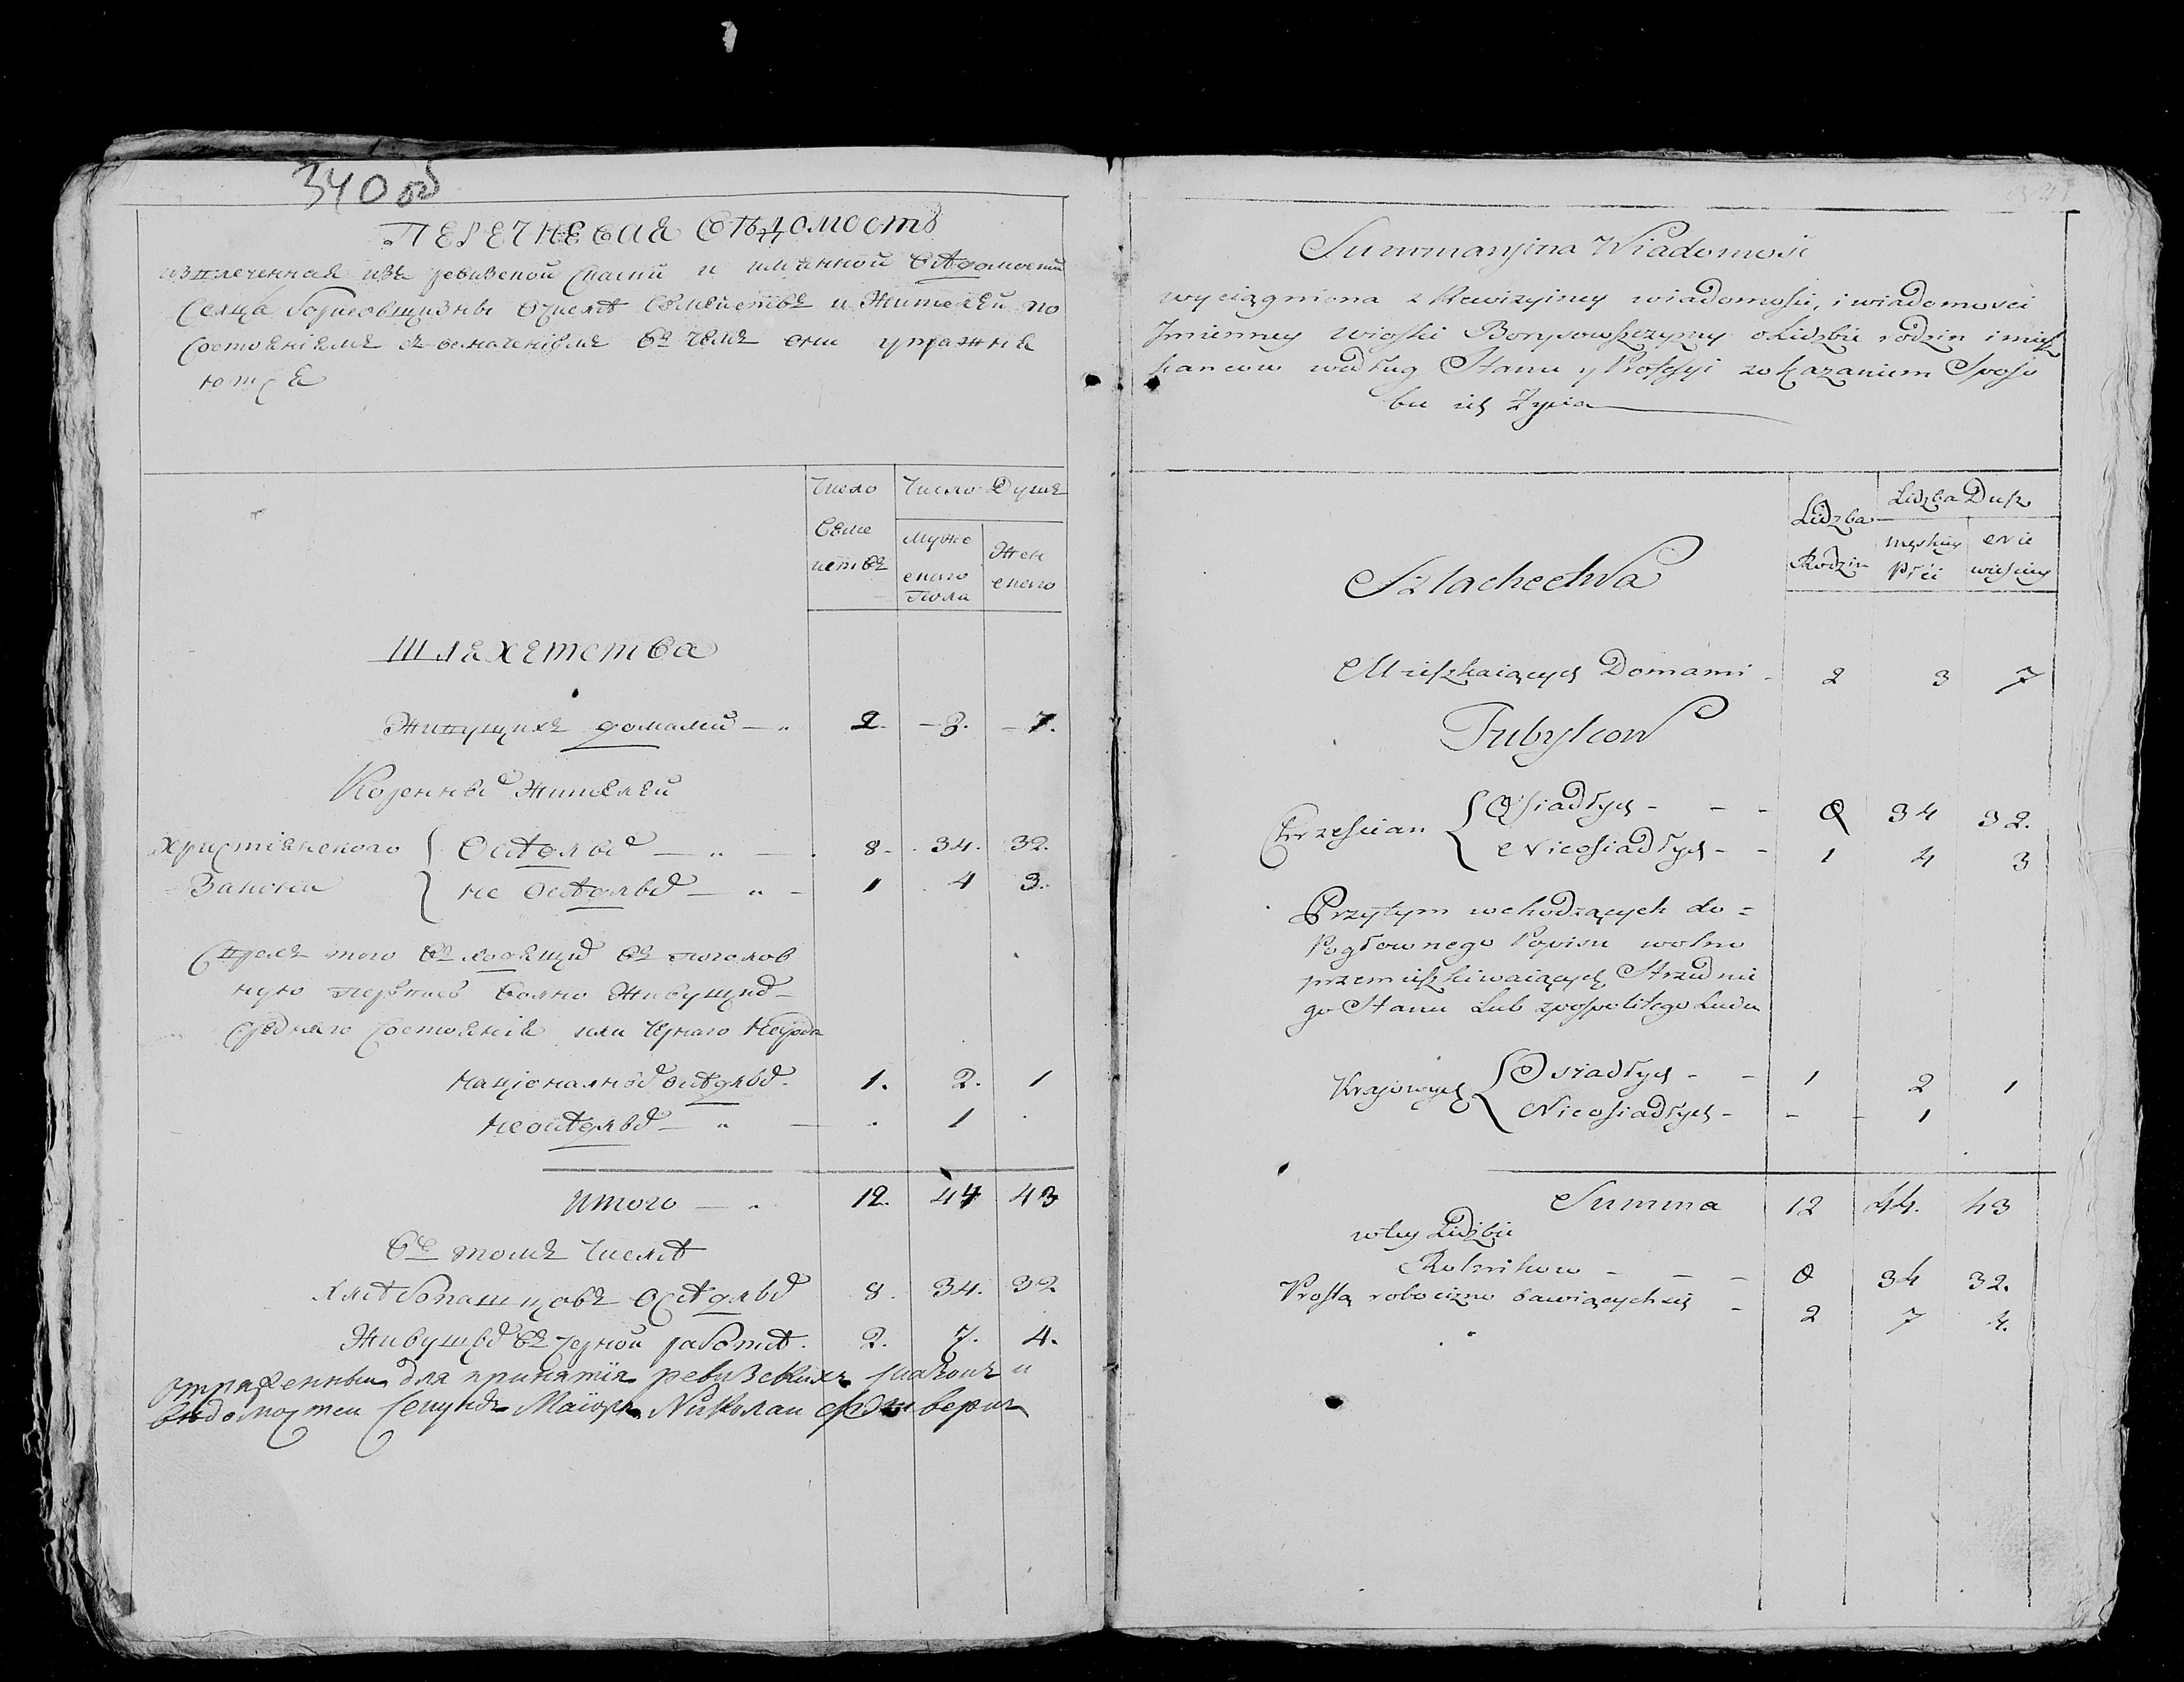 340 об
ПЕРЕЧНЕВАЯ ВѢДОМОСТЬ
извлеченная изъ ревизской скаски и имянной вѣдомости
селца Борисовщизны о числѣ семействъ и жителей по
состояніямъ съ означеніемъ въ чемъ они упражня
ются
Число Число душъ
Семе
Муже Жен
иствъ
скаго скаго
пола
Шляхетства
Живущихъ домами 2. 3. 7.
Коренныѣ жителей
христіянскаго Осѣдлыѣ 8 34. 32.
Закона не осѣдлыѣ 1 4 3.
Сверхъ того входящиѣ въ поголов
ную перепись волно живущиѣ
средняго состоянія или чернаго народа
націоналныѣ осѣдлыѣ 1. 2. 1
неосѣдлыѣ 1
Итого 12. 44 43
Въ томъ числѣ
хлѣбопашцовъ осѣдлыѣ 8. 34. 32
Живущыѣ въ черной работѣ 2. 7. 4.
для принятія ревизскихъ сказокъ и
вѣдомостеи секундъ Маіоръ Николаи
Summaryina Wiadomość
wyciągniona z Rewizyiney wiadomości, i wiadomości
Imienney wioski Borysowszczyzny o Lidzbie rodzin i miesz
kancow według Stanu y Professyi zokazaniem Sposo
bu ich Życia
Lidzba Lidzba Dusz
Rodzin męskiey Płci Nie wieściey
Szlachectwa
Mieszkaiących Domami 2 3 7
Tubylcow
Chrześcian Osiadłych 8 34 32.
Nieosiadłych 1 4 3
Przytym wchodzących do
Pogłownego Popisu wolno
przemieszkiwaiących Strzednie
go Stanu Lub zpospolitego Ludu
Krajowych Osiadłych 1 2 1
Nieosiadłych - - 1
Summa 12 44. 43
wtey Lidzbie
Rolnikow 8 34 32.
Prostą robocizno bawiących się 2 7 4.